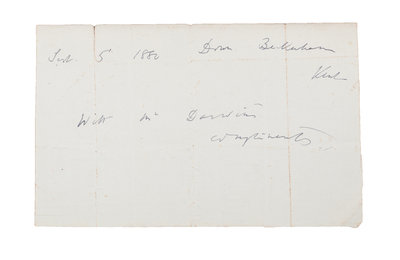 Sept. 5th 1880 Down Beckenham
Kent
With Mr Darwin's
compliments